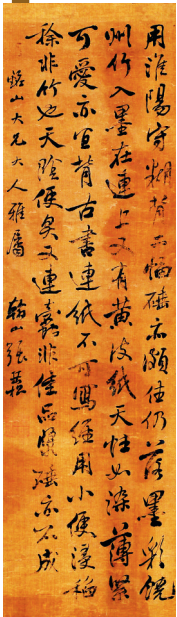 用淮陽寄糊背二幅礁亦頗佳仍落墨彩饒
州竹入墨在連上又有黃皮紙天性如染薄緊
可愛亦宜背古書連紙不可寫經用小便浸稻
稌非竹也天陰便臭又連嘉非佳品漿硾亦不成
大兄大人雅屬